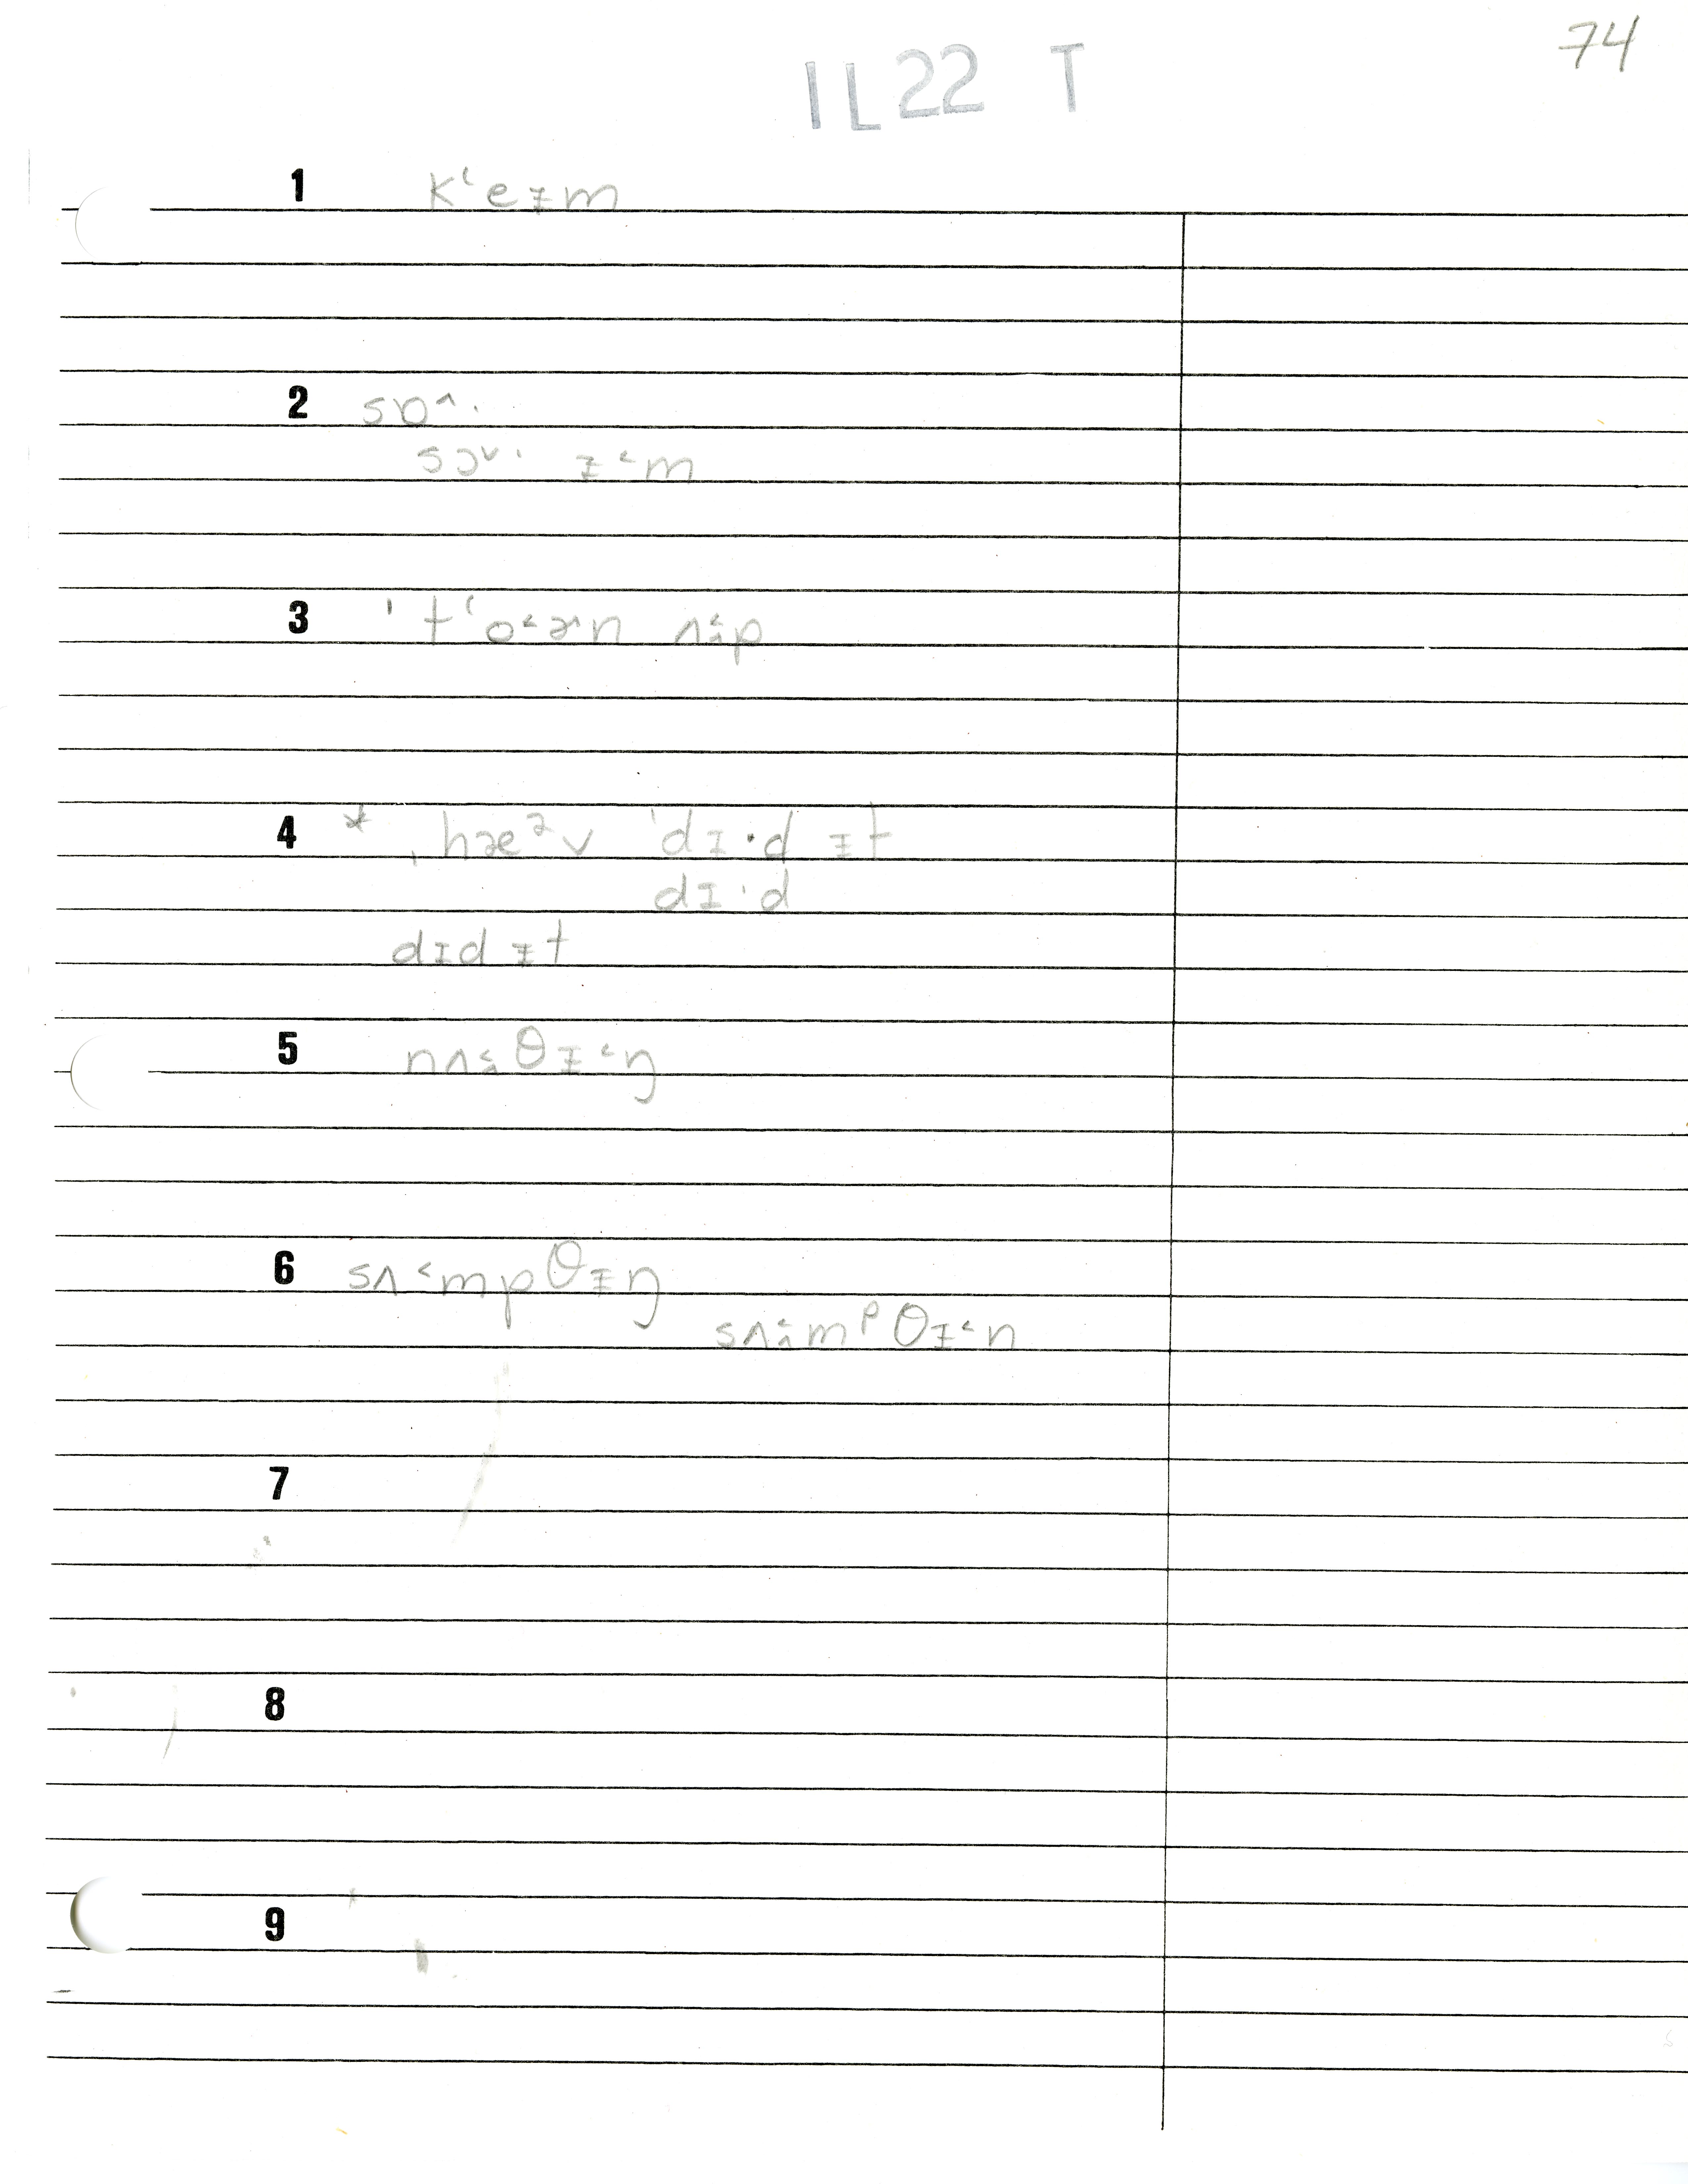 74
IL22 T
1 kʻeɪm
2 sɒ^.
sɔˇ· ɪ˂m
3 ˈtʻo˂ɚ^n ʌ˂̭p
4 * ˌhæᵊv ˈdɪ·d ɪt
dɪ·d
dɪd ɪt
5 nʌ˂̭θɪ˂ŋ
6 sʌ˂mpθɪŋ
sʌ˂̭mᵖθɪ˂n
7
8
9